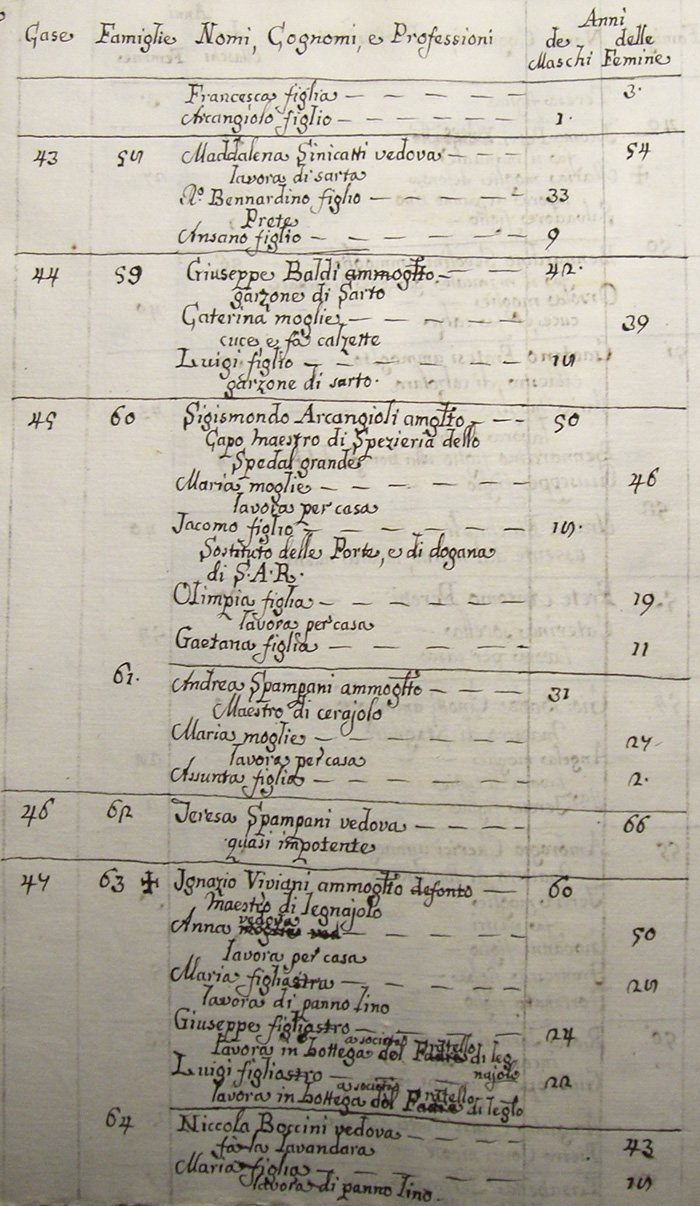 Anni
Case Famiglie Nomi, Cognomi, e Professioni de delle
Maschi Femine
Francesca figlia 3.
Arcangiolo figlio 1.
43 Maddalena Sinicatti vedova 54
lavora di sarta
Bernardino figlio 33
Prete
Ansano figlio 9
44 59 Giuseppe Baldi ammogľto 42.
garzone di Sarto
Caterina moglie 39
cuce e fa calzette
Luigi figlio
garzone di sarto.
45 60 Sigismondo Arcangioli amogľto 50
Capo Maestro di Spezieria dello
Spedal grande
Maria moglie 46
lavora per casa
Jacomo figlio
Sostituto delle Porte, e di dogana
di S.A.R.
Olimpia figlia 19
lavora per casa
Gaetana figlia 11
61. Andrea Spampani ammogľto 31
Maestro di cerajolo
Maria moglie 27
lavora per casa
Assunta figlia 2.
46 62 Teresa Spampani vedova 66
quasi impotente
47 63 ✠ Ignazio Viviani ammogľto defonto 60
maestro di legnajolo
vedova
Anna moglie ved 50
lavora per casa
Maria figliastra
lavora di panno lino
Giuseppe figliastro 24
a società Fratello
lavora in bottega del Padre di leg
najolo
Luigi figliastro 22
a società Fratello
lavora in bottega del Padre di legľo
64 Niccola Boccini vedova 43
fa la lavandara
Maria figlia
lavora di panno lino.